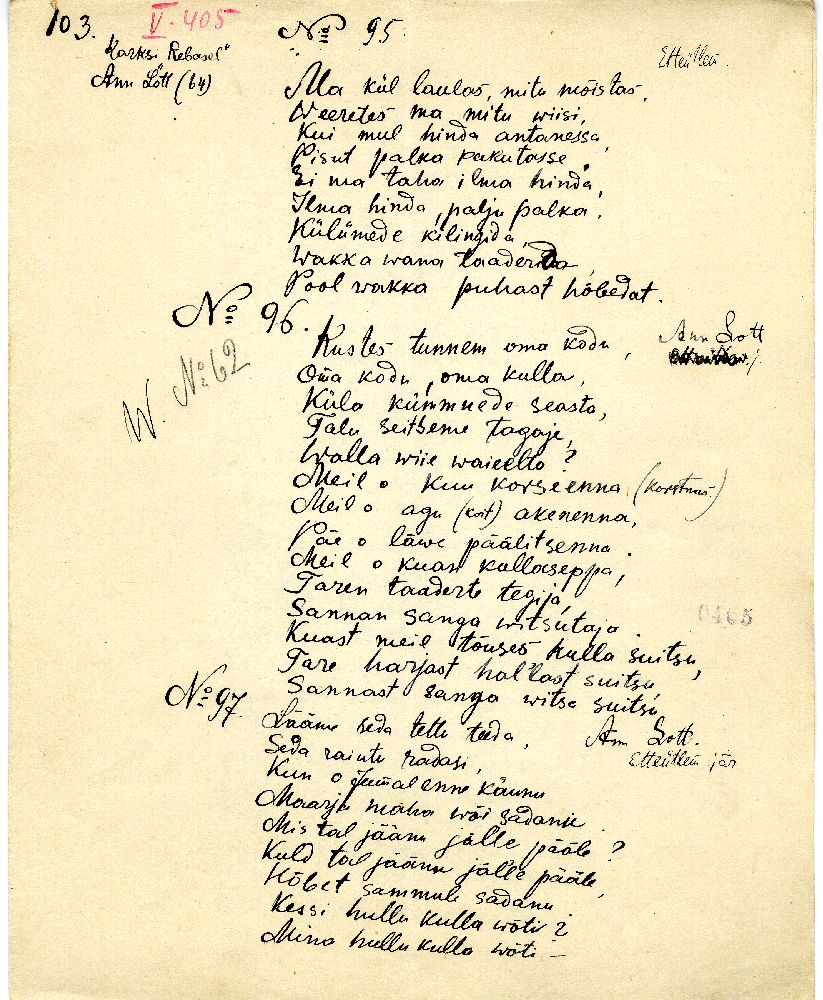 103.
V. 405
"Karksi Rebasel"
Ann Lott (64)
№ 95.
Etteütlem.
Ma kül laulas, mitu mõistas,
Weeretes ma mitu wiisi,
Kui mul hinda antanessa,
Pisut palka pakutasse.
Ei ma taha ilma hinda,
Ilma hinda, palju palka.
Külümede kilingida,
Wakka wana taaderida,
Pool wakka puhast hõbedat.
№ 96.
Ann Lott
W. № 62
Kustes tunnem oma kodu,
Oma kodu, oma kulla,
Küla kümmnede seasta,
Talu seitseme tagaje,
Walla wiie waieelta?
Meil o kuu korseenna (korstnas)
Meil o agu (koit) akenenna,
Päe o läwe päälitsenna.
Meil o kuan kullaseppa,
Taren taaderte tegija,
Sannan sanga witsutaja.
Kuast meil tõuses kulla suitsu,
Tare harjast hal'last suitsu,
Sannast sanga witsa suitsu,
0465
№ 97.
Lääme seda tettu teeda,
Ann Lott.
Seda raintu radasi,
Etteütlem jär
Kun o Jumal enne käünu
Maarja maha wõi sadanu.
Mis tal jäänu jälle pääle?
Kuld tal jäänu jälle pääle,
Hõbet sammule sadanu
Kessi hullu kulla wõti?
Mina hullu kulla wõti —